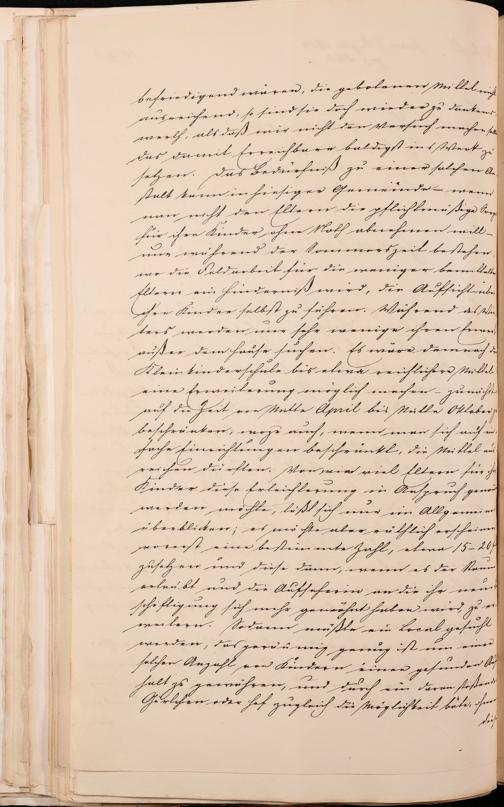 befriedigend wären, die gebotenen Mittel nicht
ausreichend, so sind sie doch wieder zu dankens-
werth, als daß wir nicht den Versuch machen
das damit Erreichbare baldigst ins Werk zu
setzen. Das Bedürfniß zu einer solchen An
stalt kann in hiesiger Gemeinde – wenn
man nicht den Eltern die pflichtmäßige Sorge
für ihre Kinder ohne Noth abnehmen will –
nur während der Sommerszeit bestehen,
wo die Feldarbeit für die weniger bemittelten
Eltern ein Hinderniß wird, die Aufsicht über
ihre Kinder selbst zu führen. Während des Win
ters werden nur sehr wenige ihren Erwerb
außer dem Hause suchen. Es wäre demnach die
Kleinkinderschule bis etwa reichlichere Mittel
eine Erweiterung möglich machen – zunächst
auf die Zeit von Mitte April bis Mitte Oktober
beschränken, wozu auch, wenn man sich auf
fache Einrichtungen beschränkt, die Mittel aus
reichen dürften. Von wie viel Eltern für ihre
Kinder diese Erleichterung in Anspruch genom
werden möchte, läßt sich nur im Allgemeinen
überblicken; es möchte aber räthlich erscheinen
vorerst eine bestimmte Zahl, etwa 15–20
zusetzen und diese dann, wenn es der Raum
erlaubt und die Aufseherin an die ihr neue
schäftigung sich mehr gewöhnt haben wird zu er
weitern. Sodann müßte ein Local gesucht
werden, das geräumig genug ist um einer
solchen Anzahl von Kindern einen gesunden Auf
halt zu gewähren, und durch ein daran stoßendes
Gärtchen oder Hof zugleich die Möglichkeit böte, ohne